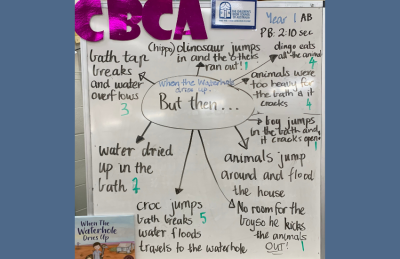 CBCA
Year 1 AB
PB: 2:10 sec
bath tap
breaks
and water
overflows
3
(hippo) dinosaur jumps
in and the others
ran out!
1
dingo eats
all the animal
4
When the Waterhole
dries up.
But then...
animals were
too heavy for
the bath & it
cracks
4
boy jumps
in the bath and
it cracks open
1
water dried
up in the
bath 2
animals jump
around and flood
the house
croc jumps
bath breaks 5
water floods
travels to the waterhole
No room for the
boy so he kicks
the animals
OUT! 1
When
The Waterhole
Dries Up